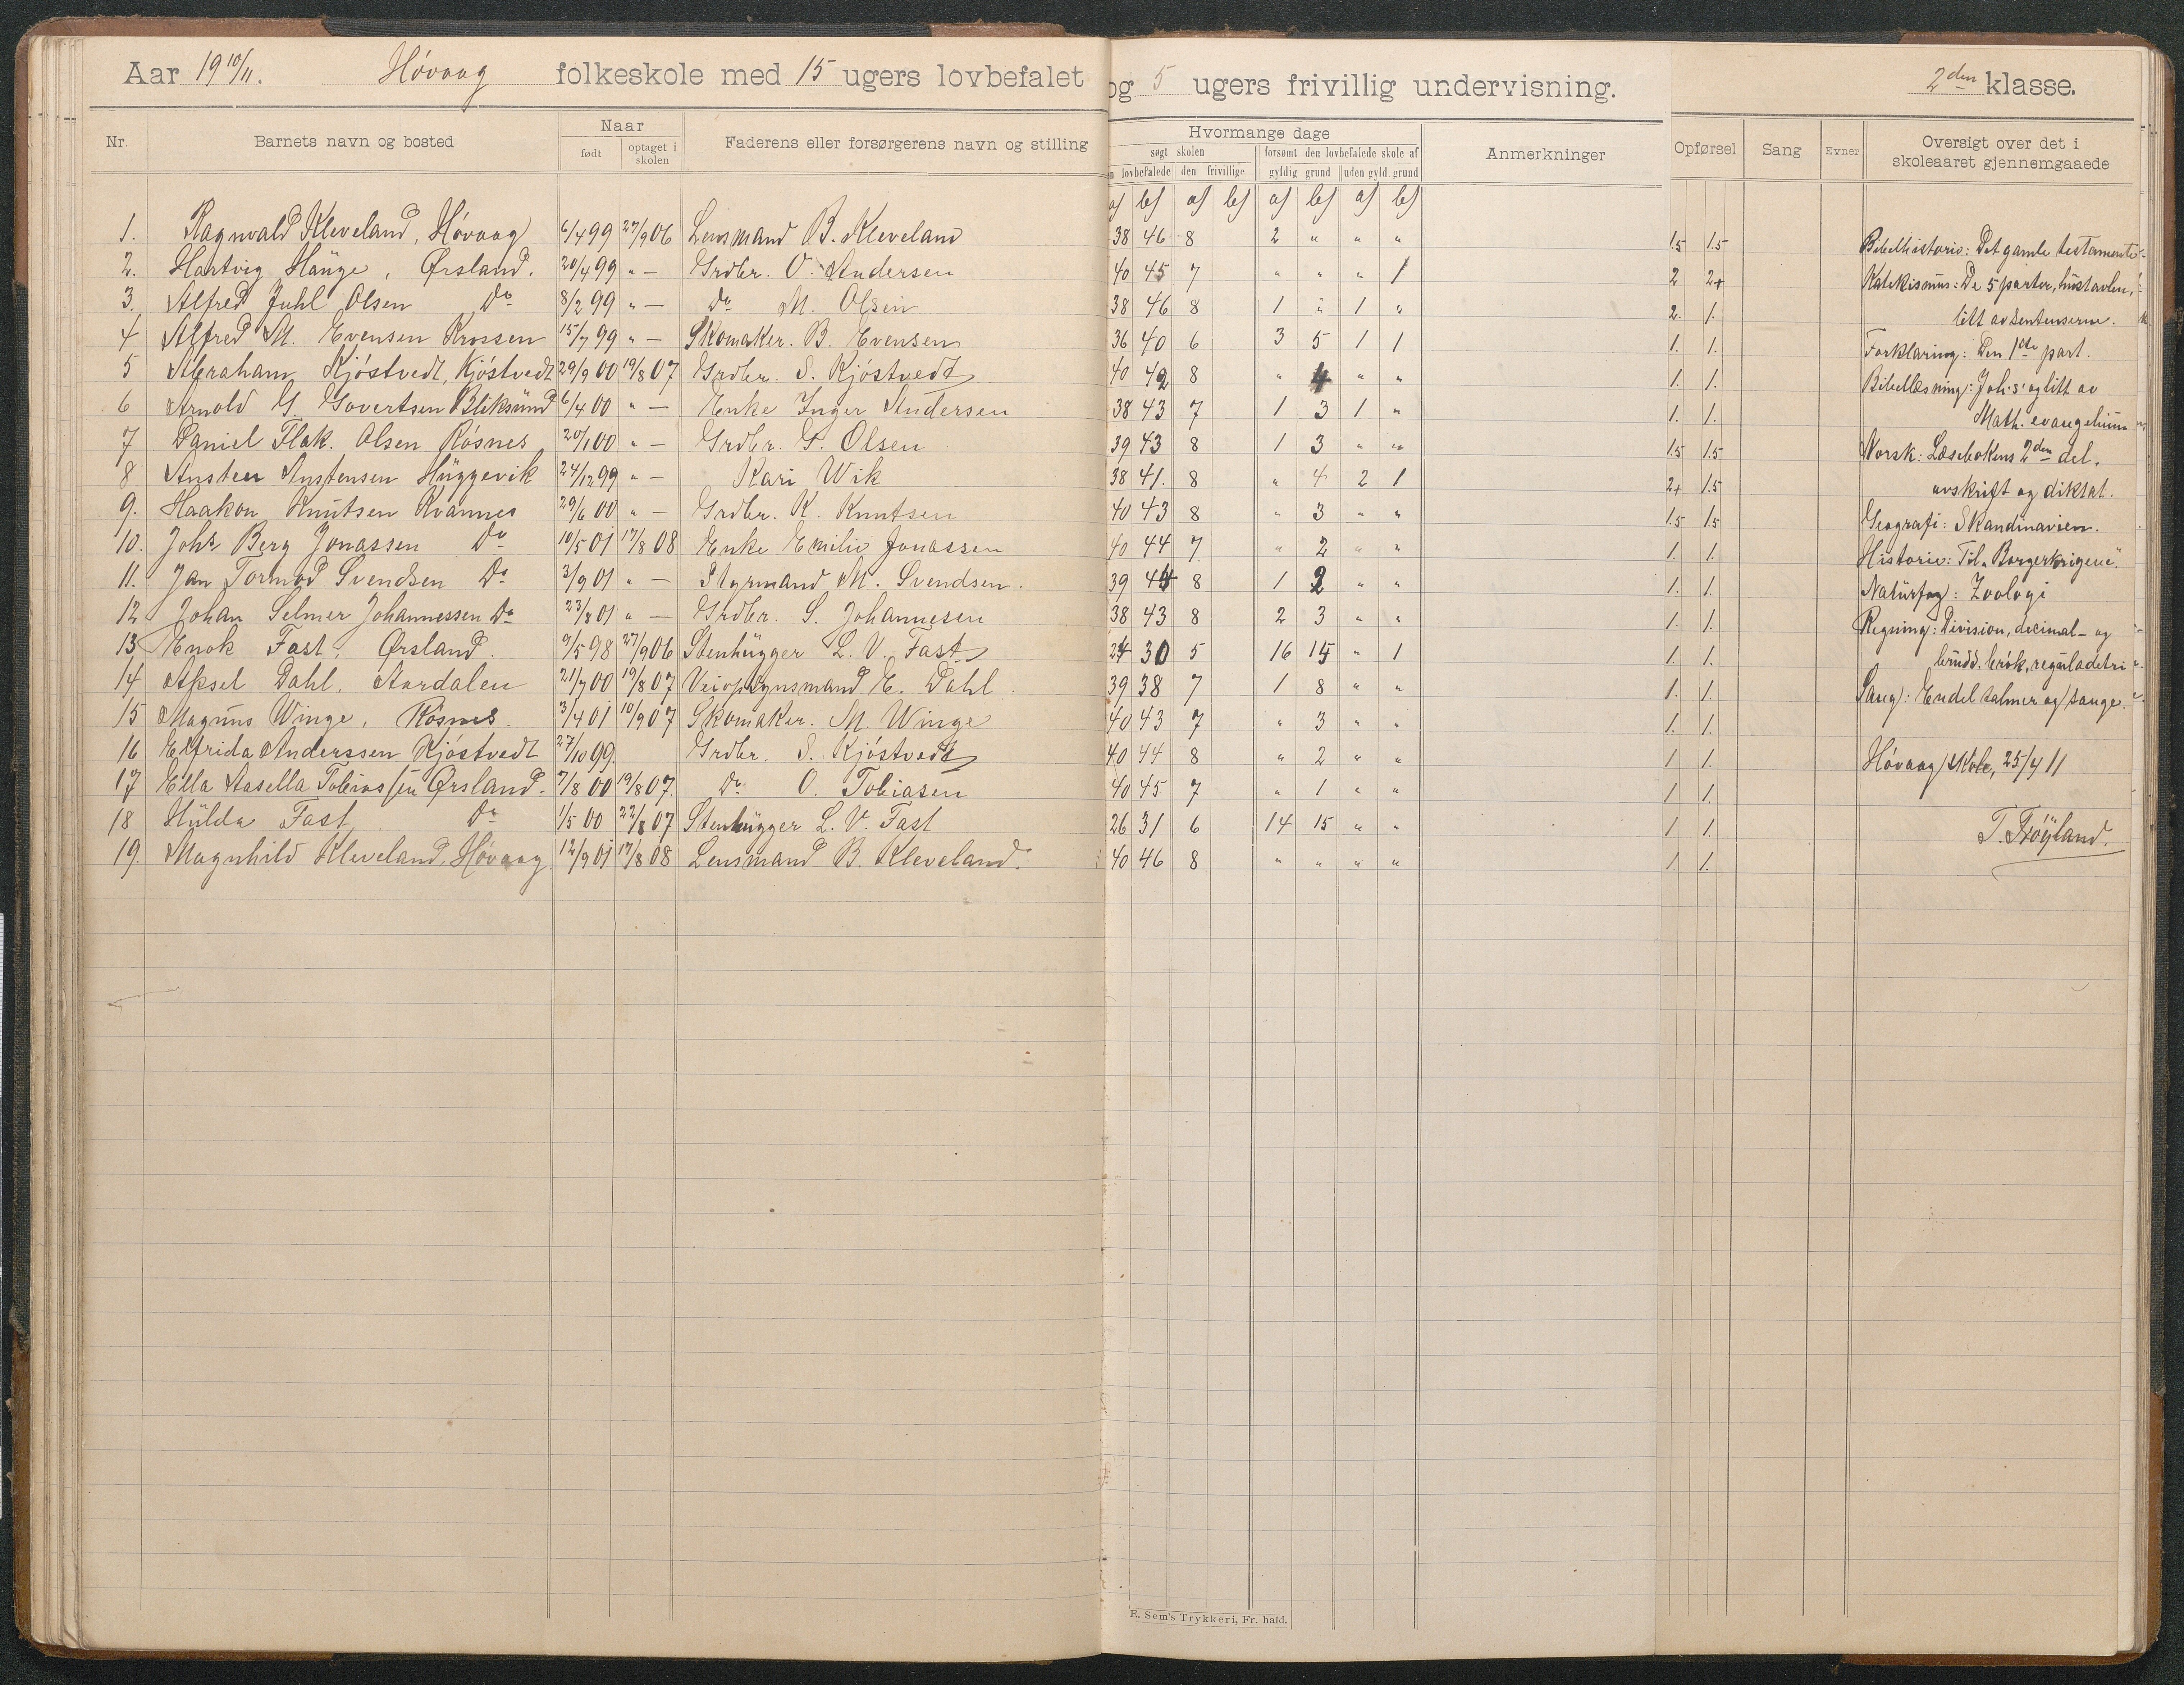 Aar 19 10/11. Høvaag folkeskole med 15 ugers lovbefalet og 5 ugers frivillig undervisning. 2den klasse.
Nr. Barnets navn og bosted Naar Faderens eller forsørgerens navn og stilling Hvormange dage Anmerkninger Opførsel Sang Evner Oversigt over det i skoleaaret gjennemgaaede
født optaget i skolen søgt skolen forsømt den lovbefalede skole af
lovbefalede den frivillige gyldig grund uden gyld grund
a) b) a) b) a) b) a) b)
1. Ragnvald Kleveland, Høvaag 6/4 99 27/9 06 Lensmand B. Kleveland 38 46 8 2 " " " 1.5 1.5
2. Hartvig Hauge, Ørsland. 20/4 99 " — Grdbr. O. Andersen 40 45 7 " " " 1 2 2+
3. Alfred Juhl Olsen Do 8/2 99 " — Do M. Olsen 38 46 8 1 " 1 " 2. 1.
4 Alfred M. Evensen Krossen 15/7 99 " — Skomaker. B. Evensen 36 40 6 3 5 1 1 1. 1.
5 Abraham Kjøstvedt, Kjøstvedt 29/9 00 19/8 07 Grdbr. S. Kjøstvedt 40 42 8 " 4 " " 1. 1.
6 Arnold G. Govertsen Bliksund 6/4 00 " — Enke Inger Andersen 38 43 7 1 3 1 " 1. 1.
7 Daniel Flak. Olsen Røsnes 20/1 00 " — Grdbr. G. Olsen 39 43 8 1 3 " " 1.5 1.5
8 Ansten Anstensen Huggevik 24/12 99 " — Kari Wik 38 41. 8 " 4 2 1 2+ 1.5
9. Haakon Knutsen Kvannes 29/6 00 " — Grdbr. K. Knutsen 40 43 8 " 3 " " 1.5 1.5
10. Johs Berg Jonassen Do 10/5 01 17/8 08 Enke Emilie Jonassen 40 44 7. " 2 " " 1. 1.
11. Jan Tormod Svendsen Do 3/9 01 " — Styrmand M. Svendsen. 39 44 8 1 2 " " 1. 1.
12 Johan Selmer Johannessen Do 23/8 01 " — Grdbr. S. Johannesen 38 43 8 2 3 " " 1. 1.
13 Enok Fast, Ørsland. 9/5 98 27/9 06 Stenhugger L. V. Fast 24 30 5 16 15 " 1 1. 1.
14 Aksel Dahl, Aardalen 21/7 00 19/8 07 Veiopsynsmand E. Dahl. 39 38 7 1 8 " " 1. 1.
15 Magnus Winge, Røsnes. 3/4 01 10/9 07 Skomaker. M. Winge 40 43 7 " 3 " " 1. 1.
16 Elfrida Anderssen Kjøstvedt 27/10 99 Grdbr. S. Kjøstvedt 40 44 8 " 2 " " 1 1.
17 Ella Aasella Tobiassen Ørsland. 7/8 00 19/8 07. Do O. Tobiasen 40 45 7 " 1 " " 1 1.
18 Hulda Fast Do 1/5 00 22/8 07 Stenhugger L. V. Fast 26 31 6 14 15 " " 1 1.
19. Magnhild Kleveland, Høvaag. 12/9 01 17/8 08 Lensmand B. Kleveland. 40 46 8 " " " " 1. 1.
Bibelhistorie: Det gamle testamente
Katekismus: De 5 parter, hustavlen,
litt av sentenserne.
Forklaring: Den 1ste part.
Bibellæsning: Joh's og litt av
Math. evangelium
Norsk: Læsebokens 2den del.
avskrift og diktat.
Geografi: Skandinavien.
Historie: Til "Borgerkrigene".
Naturfag: Zoologi
Regning: Division, decimal- og
brudd. brøk, reguladetri
Sang: Endel salmer og sange.
Høvaag skole, 25/4 11
T. Frøyland.
E. Sem's Trykkeri, Fr. hald.